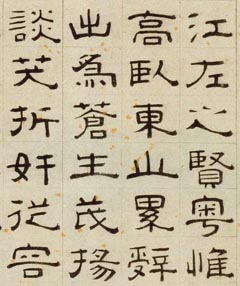 江左之賢粵惟
高臥東山累辤
出爲蒼生茂揚
談笑折奸從容